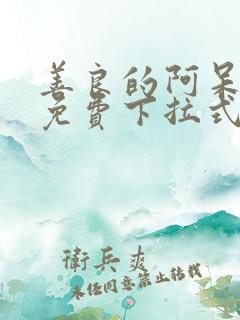 善良的阿呆
免費下拉式
衛兵爽
未经同意禁止转载